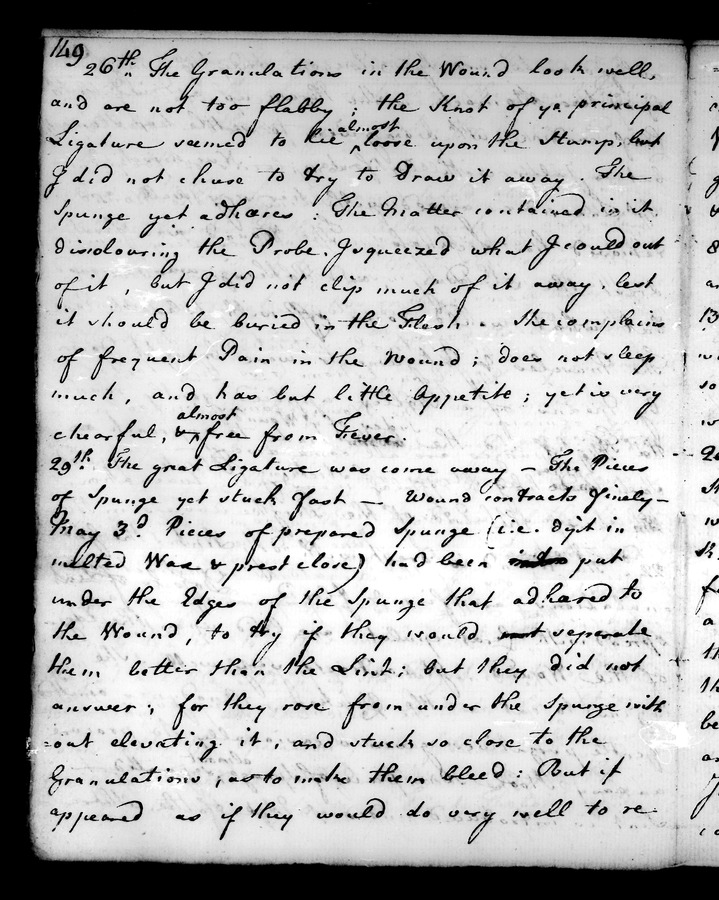 149
26th The Granulations in the Wound look well,
and are not too flabby; the Knot of ye principal
almost
Ligature seemed to lie ^ loose upon the Stump, but
I did not chuse to try to Draw it away. The
Spunge yet adhæres: The Matter contained in it
discolouring the Probe. I squeezed what I could out
of it, but I did not clip much of it away, lest
it should be buried in the Flesh. She complains
of frequent Pain in the Wound; does not sleep
much, and has but little Appetite; yet is very
almost
chearful, & ^ free from Fever.
29th. The great Ligature was come away – The Pieces
of Spunge yet stuck fast – Wound contracts finely –
May 3d. Pieces of prepared Spunge (i.e. dipt in
melted Wax & prest close) had been put
under the Edges of the Spunge that adhæred to
the Wound, to try if they would separate
them better than the Lint; but they did not
answer; for they rose from under the Spunge with
=out elevating it, and stuck so close to the
Granulations, as to make them bleed: But it
appeared as if they would do very well to re